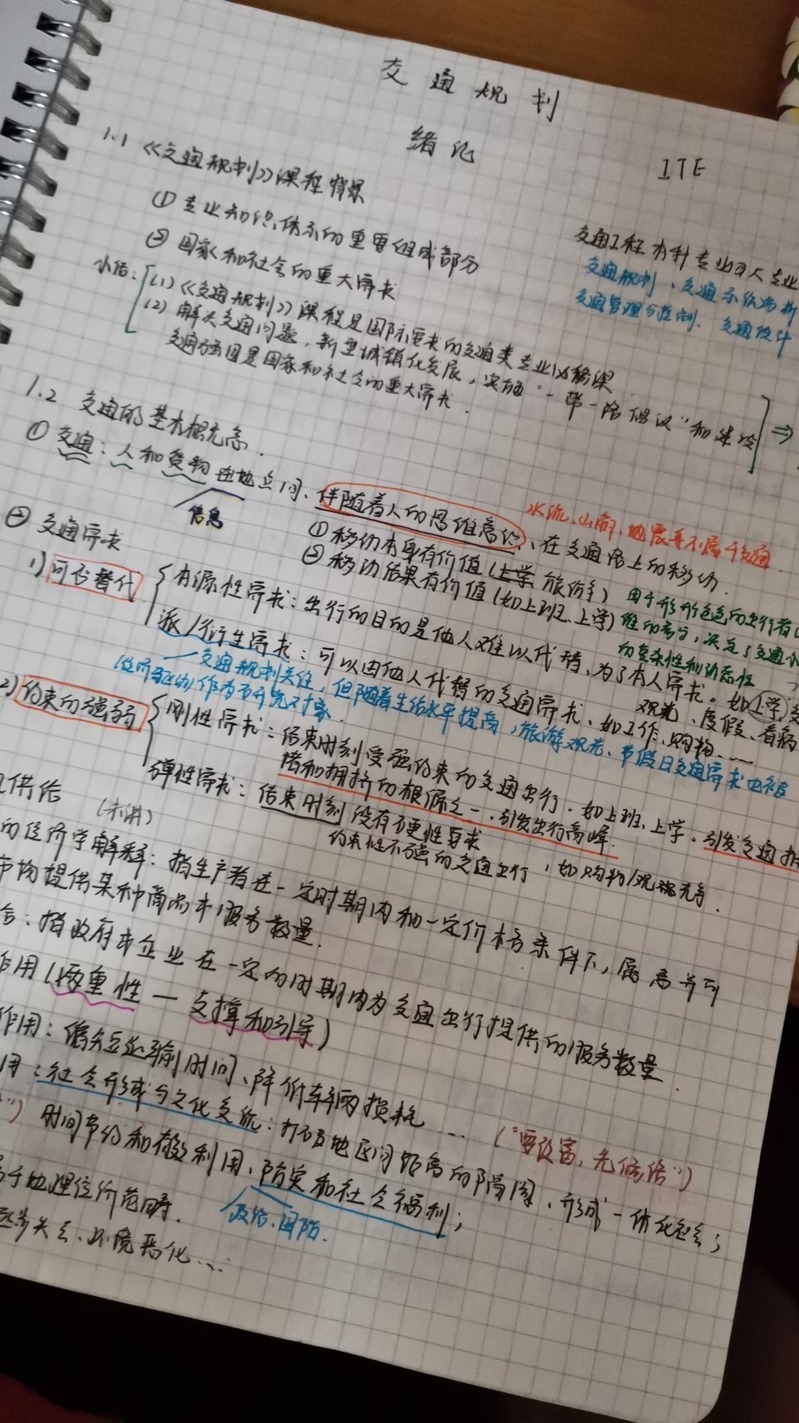 交通规划
绪论
ITE
1.1 《交通规划》课程背景
① 专业知识体系的重要组成部分
② 国家和社会的重大需求
交通工程本科专业四大专业
交通规划、交通系统分析
交通管理与控制、交通设计
小结:
(1)《交通规划》课程是国际要求的交通类专业必修课
(2) 解决交通问题,新型城镇化发展,实施"一带一路倡议"和建设
交通强国是国家和社会的重大需求.
⇒
1.2 交通的基本概念.
① 交通:人和货物在地点间、伴随着人的思维意识、在交通路上的移动.
信息
水流、山崩、地震等不属于交通
① 移动本身有价值(上学 旅游等)
② 移动结果有价值(如上班、上学)
由于形形色色的出行者
的复杂性和动态性
② 交通需求
1) 可否替代
本源性需求:出行的目的是他人难以代替、为了本人需求。如上学
观光、度假、看病
派/衍生需求:可以由他人代替的交通需求、如工作、购物……
交通规划关注,但随着生活水平提高,旅游观光、节假日交通需求也被
作为研究对象.
2) 约束的强弱
刚性需求:结束时刻受强约束的交通出行.如上班、上学.引发交通拥
堵和拥挤的根源之一.引发出行高峰.
弹性需求:结束时刻没有硬性要求
约束性不强的交通出行,如购物/观光等.
供给 (未讲)
的经济学解释:指生产者在一定时期内和一定价格条件下,愿意并可
市场提供某种商品本服务数量.
指政府本企业在一定的时期内为交通出行提供的服务数量.
作用(两重性 — 支撑和引导)
作用:缩短运输时间、降低车辆损耗 …
("要致富,先修路")
用:社会形成与文化交流:打破地区间距离的隔阂、形成一体化社会;
时间节约和有效利用、防灾和社会福利;
政治、国防.
于地理位价范畴.
失去、环境恶化…